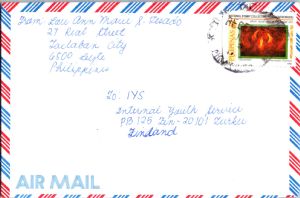 From: Lou Ann Marie S. Rosado
27 Real Street
Tacloban City
6500 Leyte
Philippines
To: IYS
Internal Youth Service
PB 125 Fin-20101 Turku
Finland
AIR MAIL